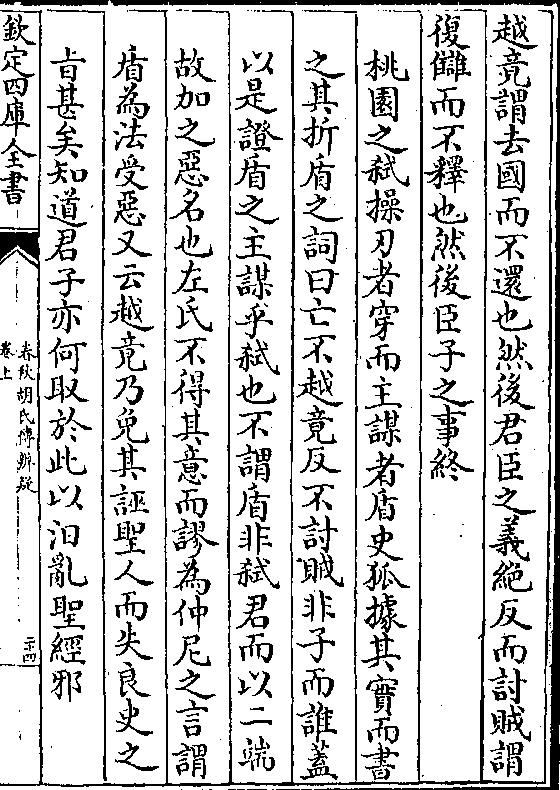 越竟謂去國而不還也然後君臣之義絶反而討賊謂
復讎而不釋也然後臣子之事終
桃園之弑操刃者穿而主謀者盾史狐據其實而書
之其折盾之詞曰亡不越竟反不討賊非子而誰蓋
以是證盾之主謀乎弑也不謂盾非弑君而以二端
故加之惡名也左氏不得其意而謬為仲尼之言謂
盾為法受惡又云越竟乃免其誣聖人而失良史之
㫖甚矣知道君子亦何取於此以汨亂聖經邪
欽定四庫全書
春秋胡氏傳辨疑
卷上
二十四